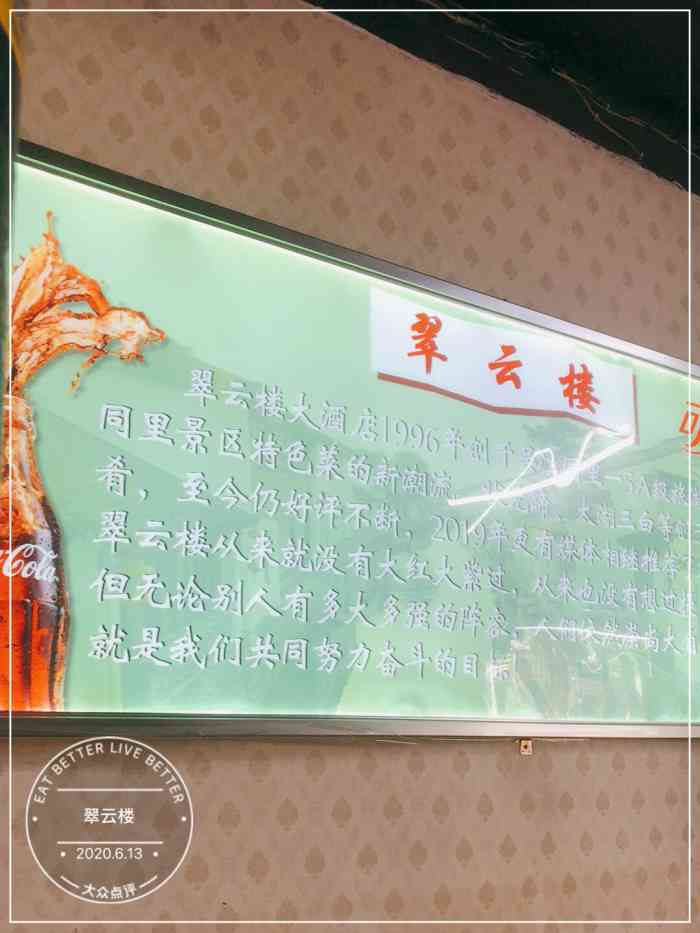 翠云楼
翠云楼大酒店1996年创于
同里景区特色菜的新潮流,
肴,至今仍好评不断,2019年更有媒体相继推荐
翠云楼从来就没有大红大紫过,从来也没有想过
但无论别人有多大多强的阵容,人们依然崇尚大
就是我们共同努力奋斗的目标
Coca-Cola
EAT BETTER LIVE BETTER
翠云楼
2020.6.13
大众点评